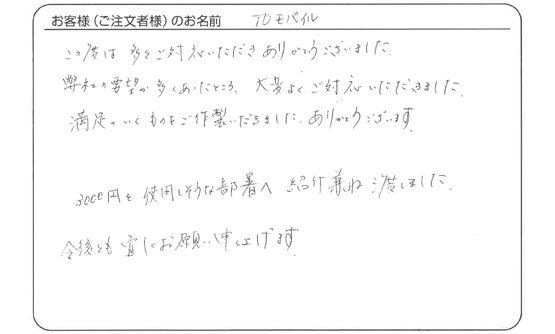 お客様(ご注文者様)のお名前 TDモバイル
この度は多々ご対応いただきありがとうございました。
弊社の要望が多くあったところ、大変よくご対応いただきました。
満足のいくものをご作製いただきました。ありがとうございます。
3000円を使用しそうな部署へ紹介兼ね渡しました。
今後とも宜しくお願い申し上げます。